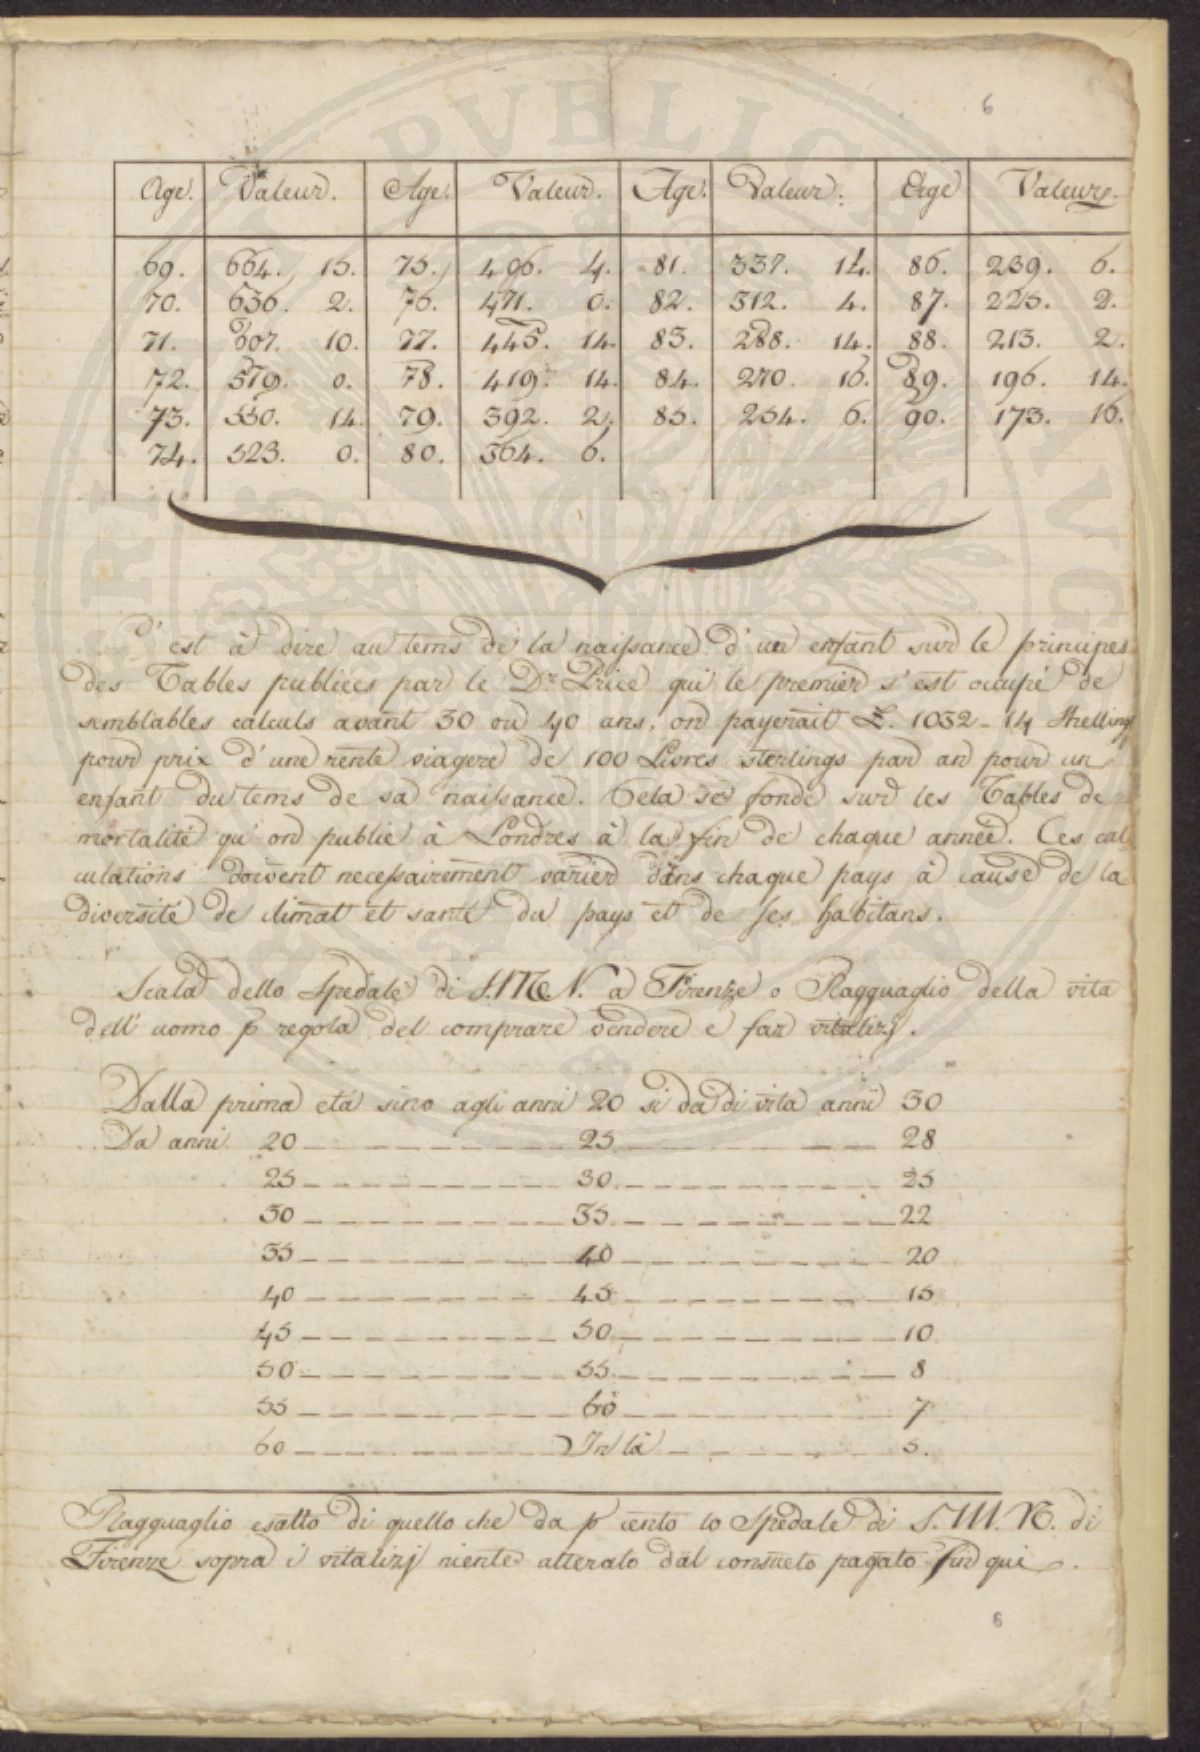 6
Age. Valeur. Age. Valeur. Age. Valeur. Age Valeur.
69. 664. 15. 75. 496. 4. 81. 337. 14. 86. 239. 6.
70. 636. 2. 76. 471. 0. 82. 312. 4. 87. 225. 2.
71. 607. 10. 77. 445. 14. 83. 288. 14. 88. 213. 2.
72. 579. 0. 78. 419. 14. 84. 270. 16. 89. 196. 14.
73. 550. 14. 79. 392. 2. 85. 254. 6. 90. 173. 16.
74. 523. 0. 80. 364. 6.
C'est à dire au tems de la naissance d'un enfant sur le principes
des Tables publiées par le Dr. Price qui le premier s'est occupé de
semblables calculs avant 30 ou 40 ans, on payerait L. 1032 - 14 Shelling
pour prix d'une rente viagere de 100 Livres sterlings par an pour un
enfant du tems de sa naissance. Cela se fonde sur les Tables de
mortalité qu'on publie à Londres à la fin de chaque année. Ces cal
culations doivent necessairement varier dans chaque pays à cause de la
diversité de climat et santé du pays et de ses habitans.
Scala dello Spedale di S. M. N. a Firenze o Ragguaglio della vita
dell'uomo p regola del comprare vendere e far vitalizj.
Dalla prima età sino agli anni 20 si da di vita anni 30
Da anni 20 _ _ _ _ _ _ _ _ _ 25 _ _ _ _ _ _ _ _ _ 28
25 _ _ _ _ _ _ _ _ _ 30 _ _ _ _ _ _ _ _ _ 25
30 _ _ _ _ _ _ _ _ _ 35 _ _ _ _ _ _ _ _ _ 22
35 _ _ _ _ _ _ _ _ _ 40 _ _ _ _ _ _ _ _ _ 20
40 _ _ _ _ _ _ _ _ _ 45 _ _ _ _ _ _ _ _ _ 15
45 _ _ _ _ _ _ _ _ _ 50 _ _ _ _ _ _ _ _ _ 10
50 _ _ _ _ _ _ _ _ _ 55 _ _ _ _ _ _ _ _ _ 8
55 _ _ _ _ _ _ _ _ _ 60 _ _ _ _ _ _ _ _ _ 7
60 _ _ _ _ _ _ _ _ _ In là _ _ _ _ _ _ _ _ 5.
Ragguaglio esatto di quello che da p cento lo Spedale di S. M. N. di
Firenze sopra i vitalizj niente alterato dal consueto pagato fin qui.
6